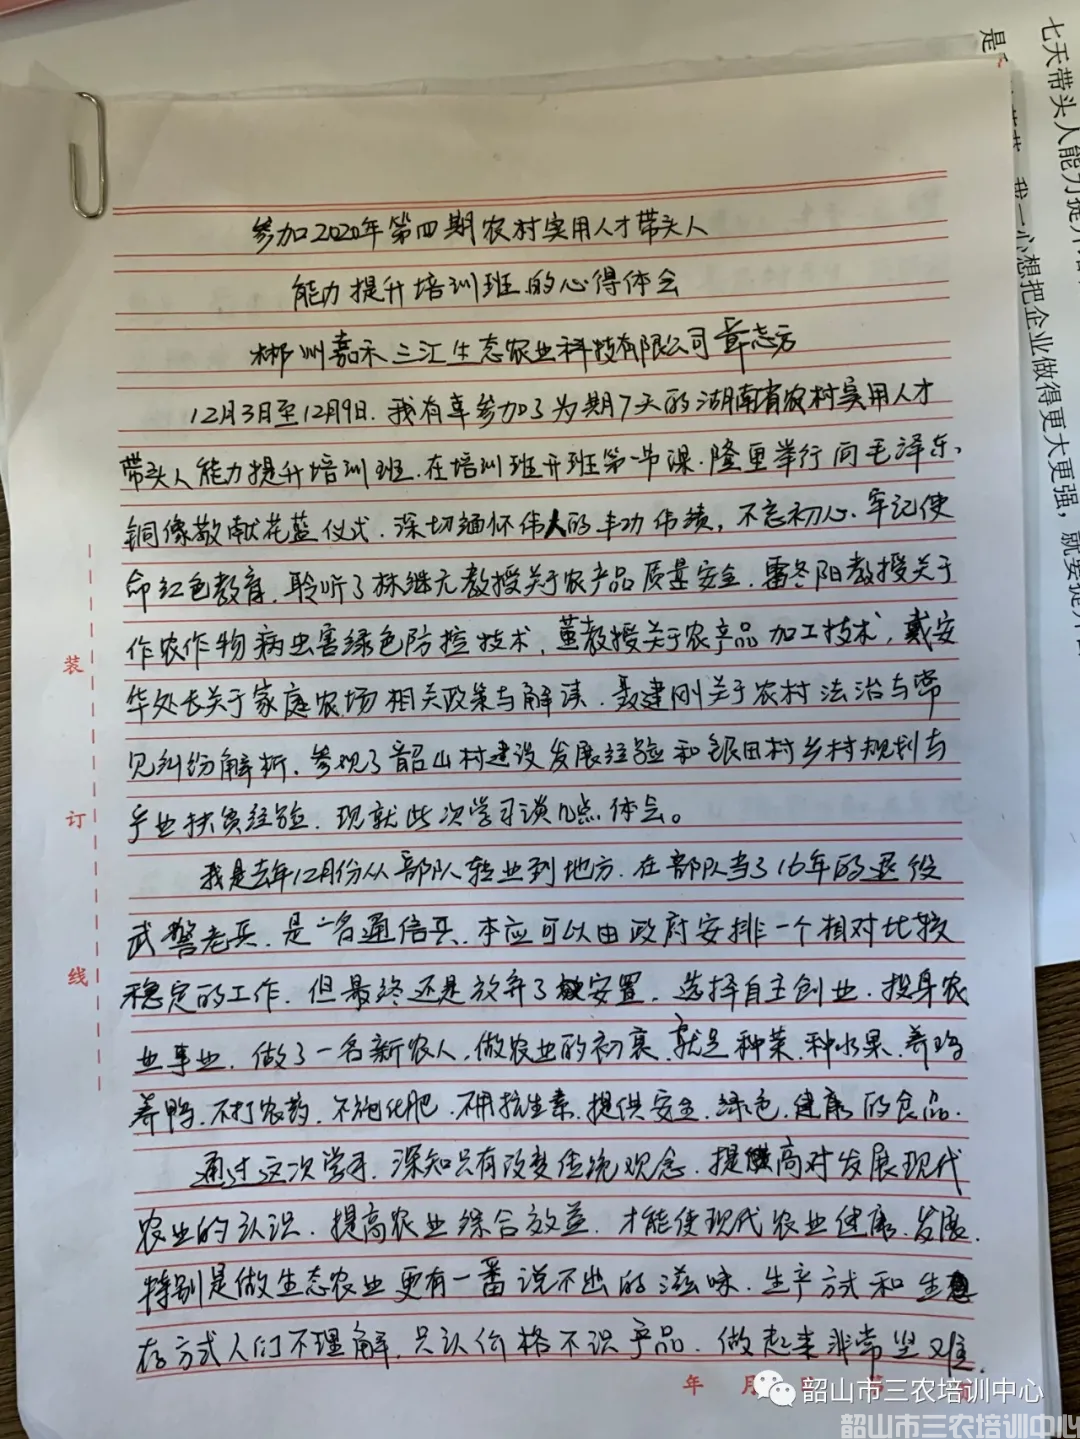 参加2020年第四期农村实用人才带头人
能力提升培训班的心得体会
郴州嘉禾三江生态农业科技有限公司 章志方
12月3日至12月9日.我有幸参加了为期7天的湖南省农村实用人才
带头人能力提升培训班.在培训班开班第一节课.隆重举行向毛泽东、
铜像敬献花蓝仪式.深切缅怀伟人的丰功伟绩，不忘初心.牢记使
命红色教育.聆听了林继元教授关于农产品质量安全.雷冬阳教授关于
作农作物病虫害绿色防控技术，董教授关于农产品加工技术，戴安
华处长关于家庭农场相关政策与解读.聂建刚关于农村法治与常
见纠纷解析.参观了韶山村建设发展经验和银田村乡村规划与
产业扶贫经验.现就此次学习谈几点体会。
我是去年12月份从部队转业到地方.在部队当了16年的退役
武警老兵.是一名通信兵.本应可以由政府安排一个相对比较
稳定的工作.但最终还是放弃了安置.选择自主创业.投身农
业事业.做了一名新农人.做农业的初衷.就是种菜.种水果.养鸡
养鸭.不打农药.不施化肥.不用抗生素.提供安全.绿色.健康的食品.
通过这次学习.深知只有改变传统观念.提高对发展现代
农业的认识.提高农业综合效益.才能使现代农业健康.发展.
特别是做生态农业更有一番说不出的滋味.生产方式和生
存方式人们不理解.只认价格不识产品.做起来非常坚难.
装
订
线
年 月 第
是
七天带头人能力提升
我一心想把企业做得更大更强，就要提升
韶山市三农培训中心
韶山市三农培训中心